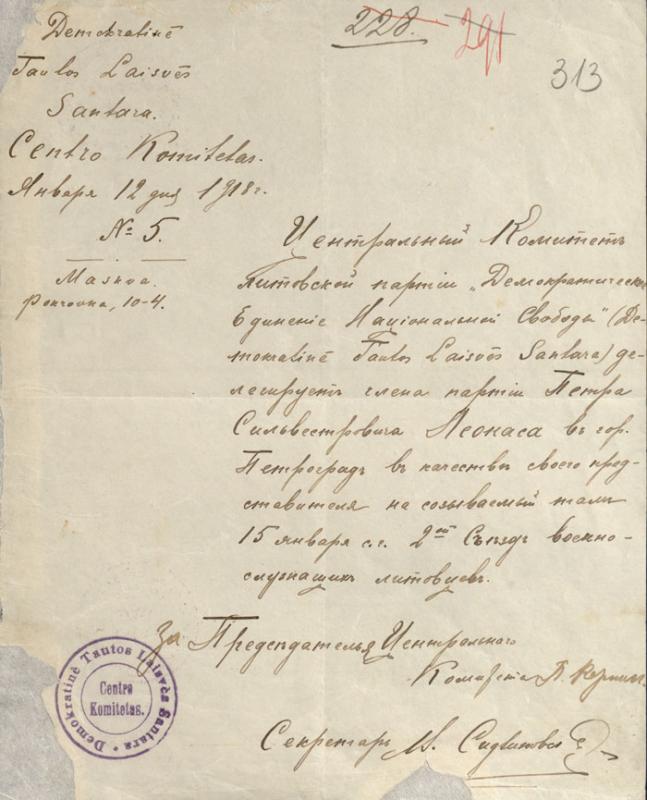 228. 291
313
Demokratinė
Tautos Laisvės
Santara.
Centro Komitetas.
Января 12 дня 1918 г.
№ 5.
Maskva.
Pokrovka, 10-4.
Центральный Комитетъ
Литовской партіи „Демократическое
Единеніе Національной Свободы" (De-
mokratinė Tautos Laisvės Santara) де-
легируетъ члена партіи Петра
Сильвестровича Леонаса въ гор.
Петроградъ въ качествѣ своего пред-
ставителя на созываемый тамъ
15 января с.г. 2ой Съѣздъ военно-
служащихъ литовцевъ.
За Предсѣдателя Центральнаго
Комитета
Секретарь
Demokratinė Tautos Laisvės Santara
Centro
Komitetas.